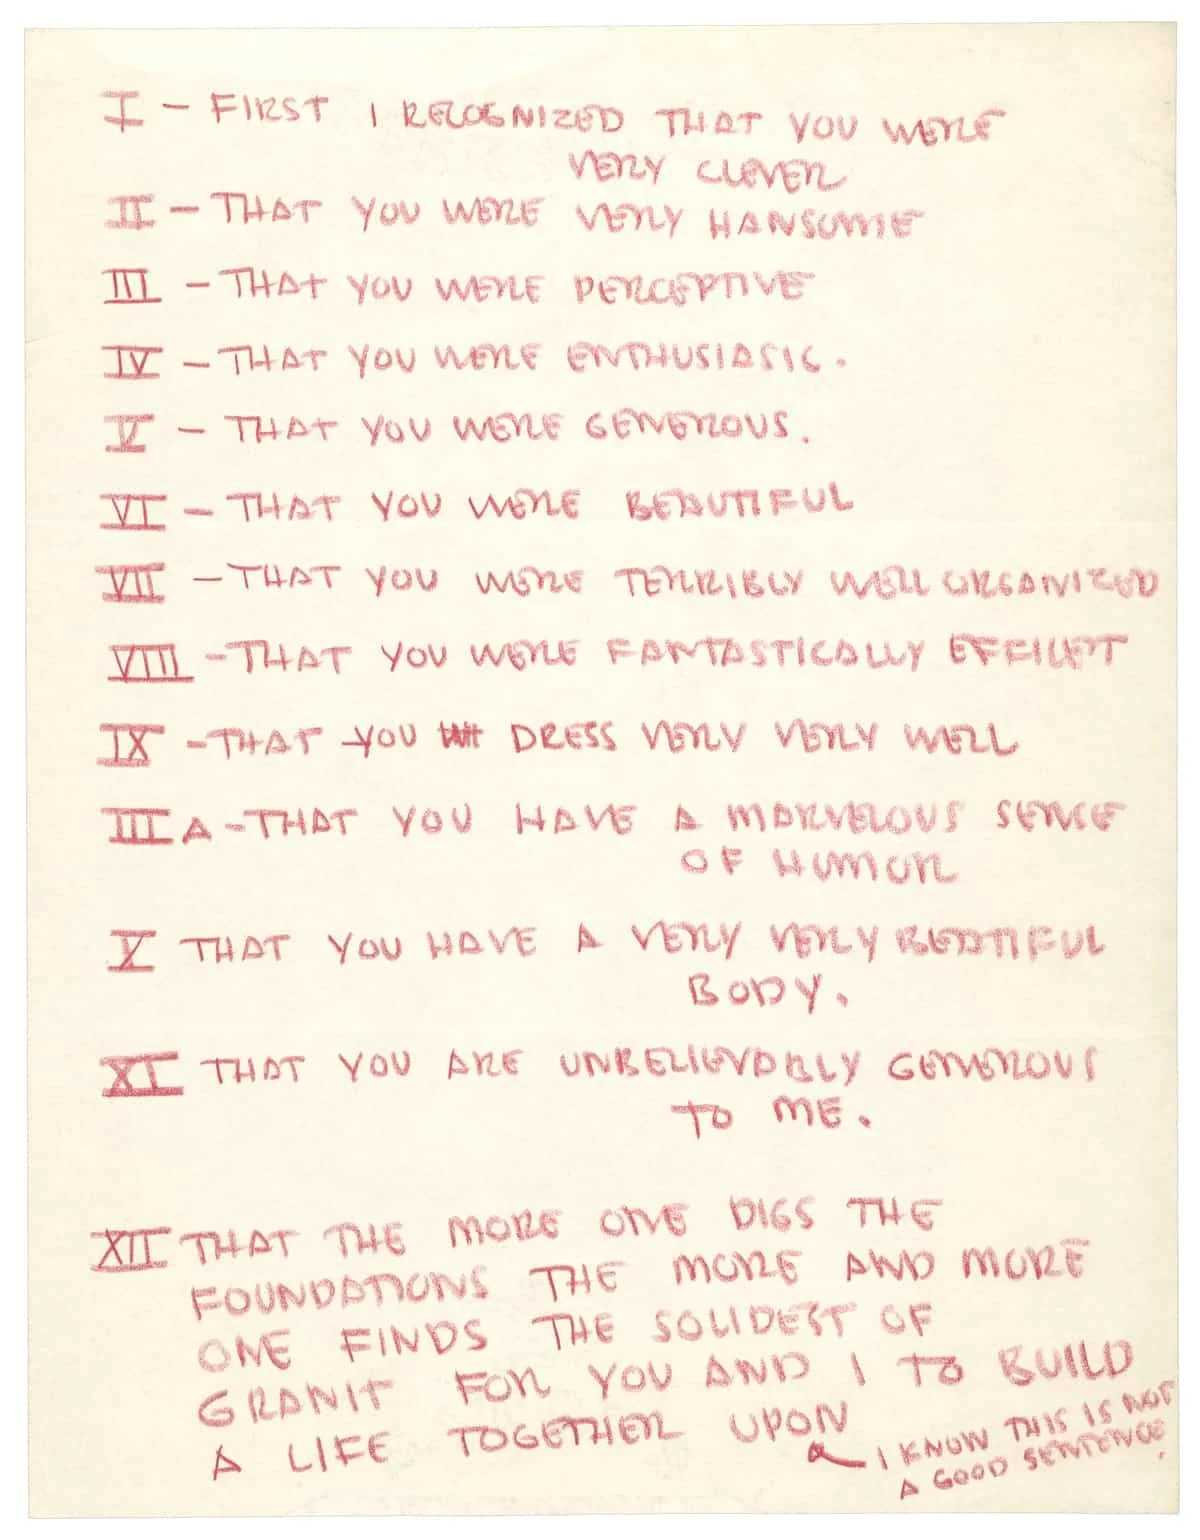 I - FIRST I RECOGNIZED THAT YOU WERE
VERY CLEVER
II - THAT YOU WERE VERY HANSOME
III - THAT YOU WERE PERCEPTIVE
IV - THAT YOU WERE ENTHUSIASIC.
V - THAT YOU WERE GENEROUS.
VI - THAT YOU WERE BEAUTIFUL
VII - THAT YOU WERE TERRIBLY WELL ORGANIZED
VIII - THAT YOU WERE FANTASTICALLY EFFICIENT
IX - THAT YOU DRESS VERY VERY WELL
IIII A - THAT YOU HAVE A MARVELOUS SENSE
OF HUMOR
X THAT YOU HAVE A VERY VERY BEATIFUL
BODY.
XI THAT YOU ARE UNBELIEVABLY GENEROUS
TO ME.
XII THAT THE MORE ONE DIGS THE
FOUNDATIONS THE MORE AND MORE
ONE FINDS THE SOLIDEST OF
GRANIT FOR YOU AND I TO BUILD
A LIFE TOGETHER UPON
I KNOW THIS IS NOT
A GOOD SENTENCE.